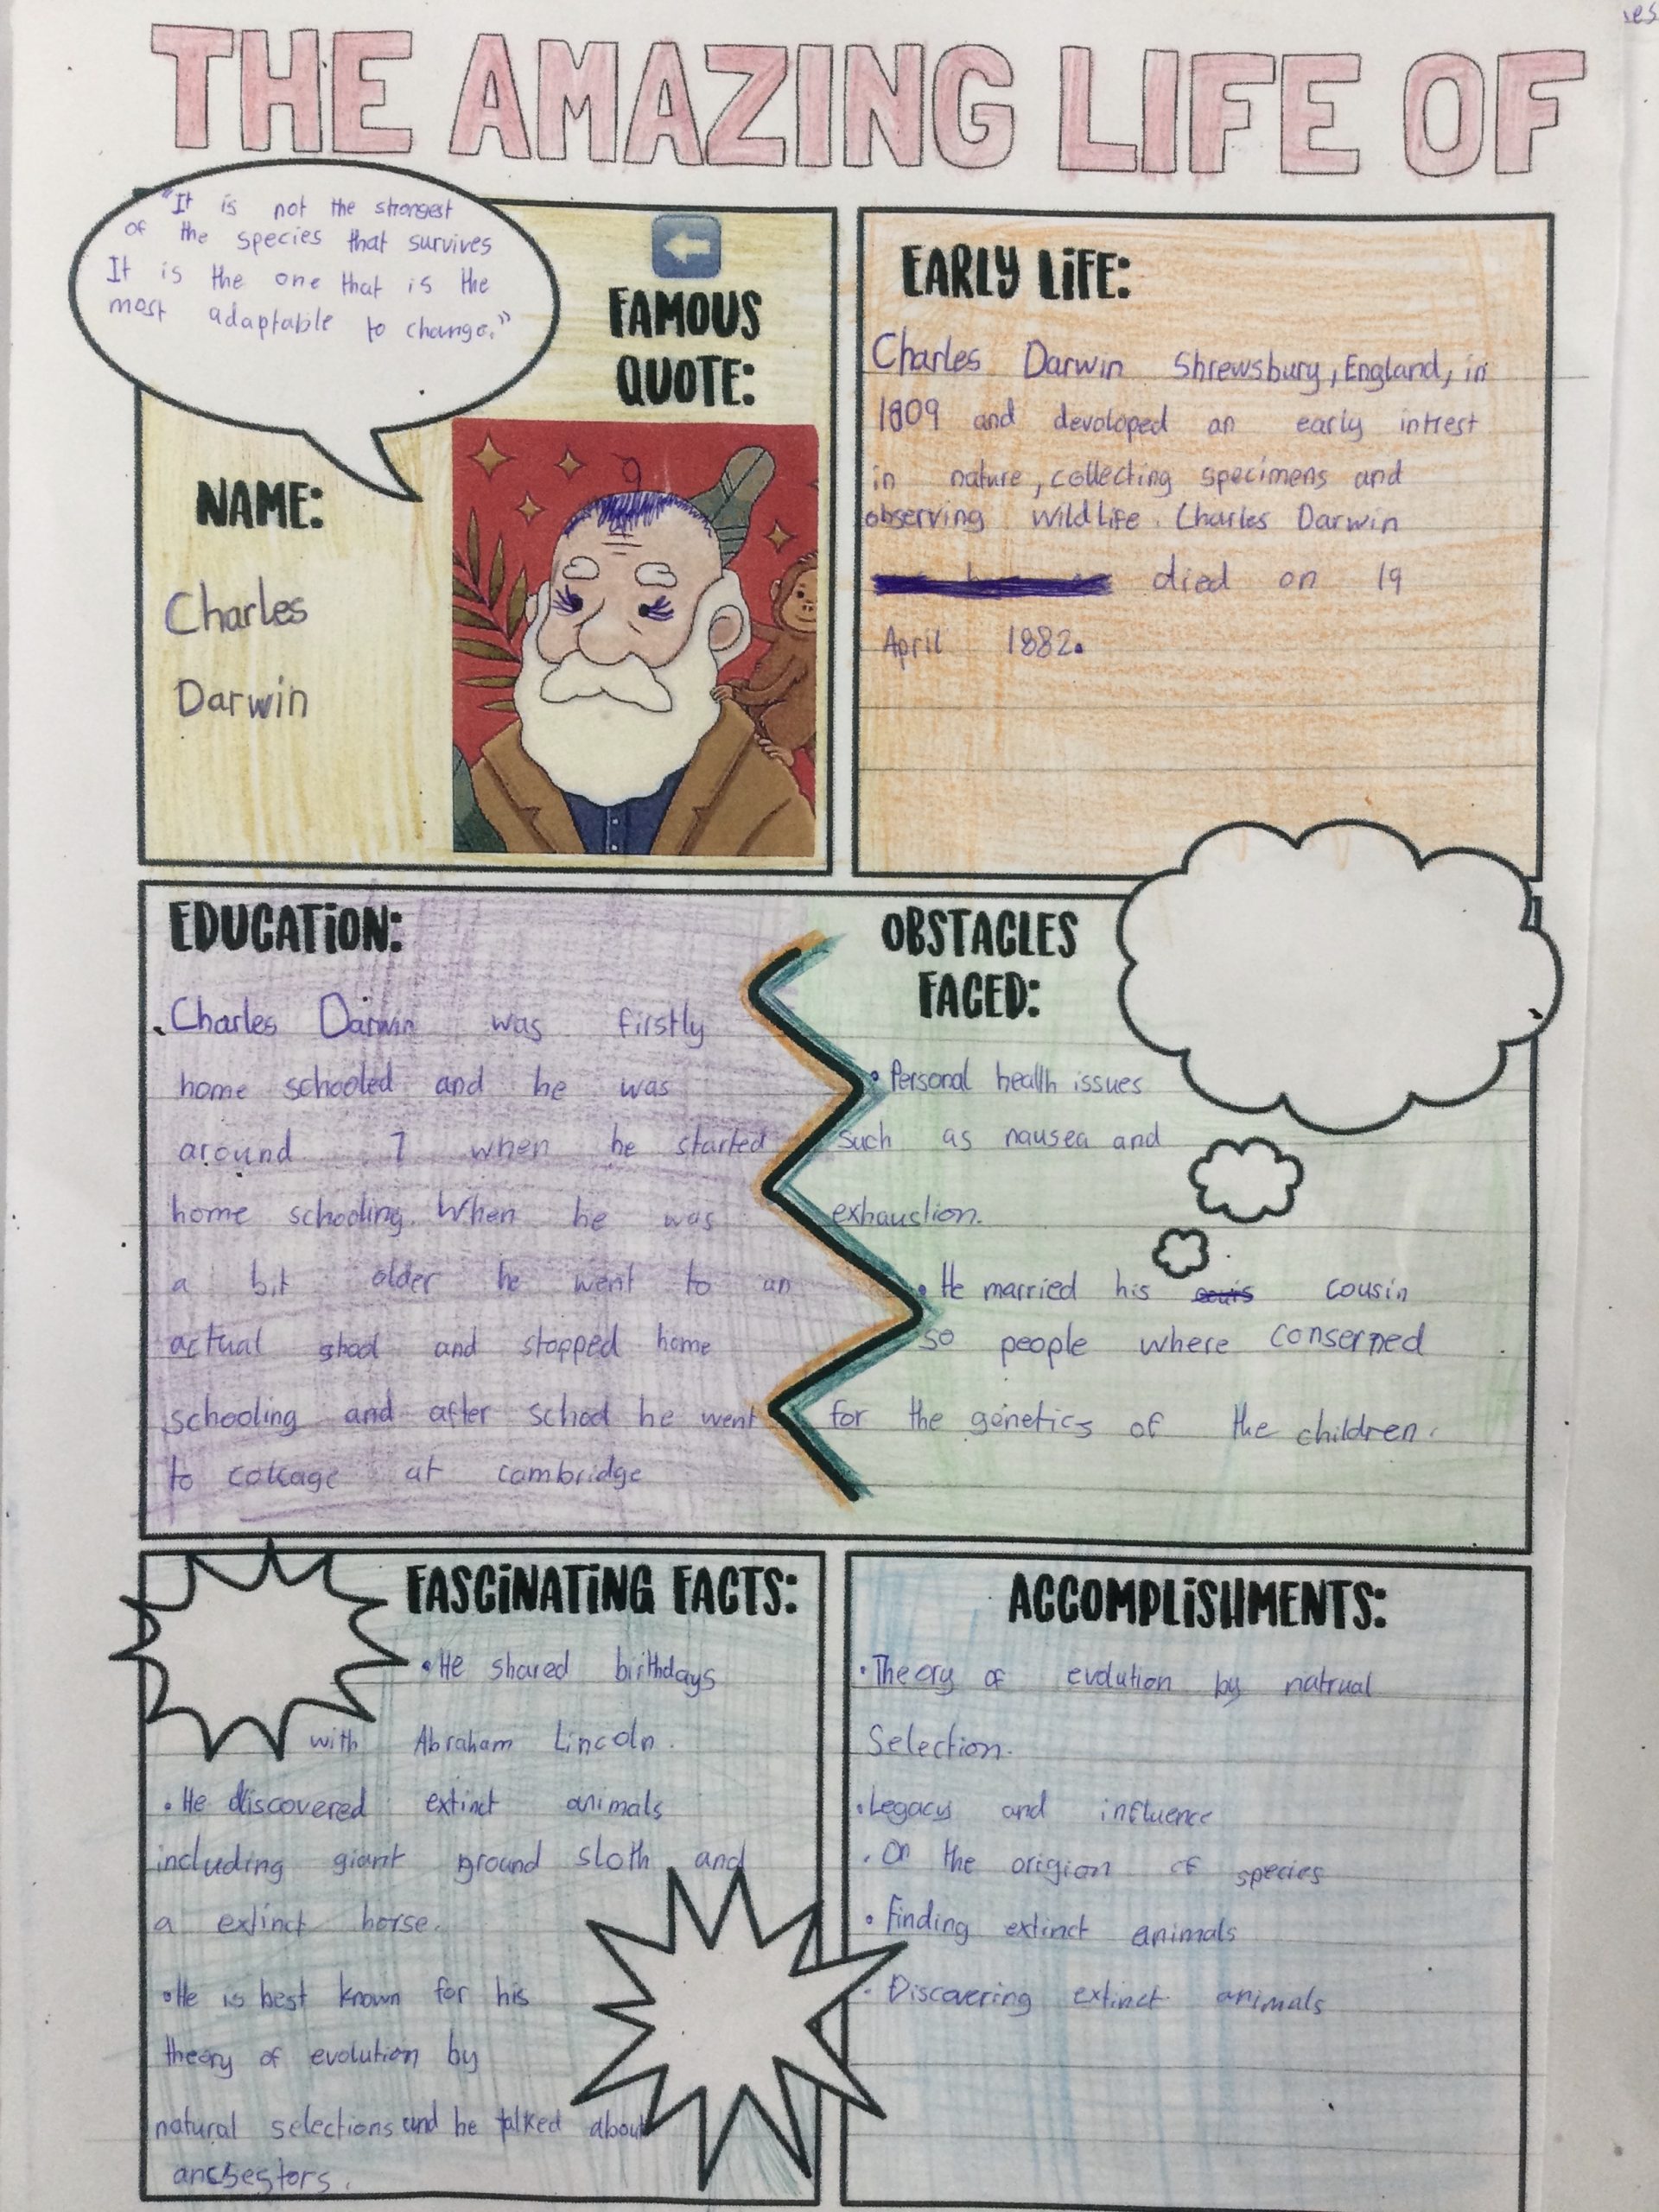 THE AMAZING LIFE OF
"It is not the strongest
of the species that survives
It is the one that is the
most adaptable to change."
FAMOUS
QUOTE:
NAME:
Charles
Darwin
EARLY LIFE:
Charles Darwin Shrewsbury, England, in
1809 and devoloped an early intrest
in nature, collecting specimens and
observing wildlife. Charles Darwin
died on 19
April 1882.
EDUCATION:
Charles Darwin was firstly
home schooled and he was
around 7 when he started
home schooling. When he was
a bit older he went to an
actual shool and stopped home
schooling and after school he went
to collage at cambridge
OBSTACLES
FACED:
• Personal health issues
such as nausea and
exhaustion.
• He married his cousin
so people where conserned
for the genetics of the children.
FASCINATING FACTS:
• He shared birthdays
with Abraham Lincoln.
• He discovered extinct animals
including giant ground sloth and
a extinct horse.
• He is best known for his
theory of evolution by
natural selections and he talked about
ancsestors.
ACCOMPLISHMENTS:
• Theory of evolution by natrual
Selection.
• Legacy and influence
• On the origion of species
• Finding extinct animals
• Discovering extinct animals